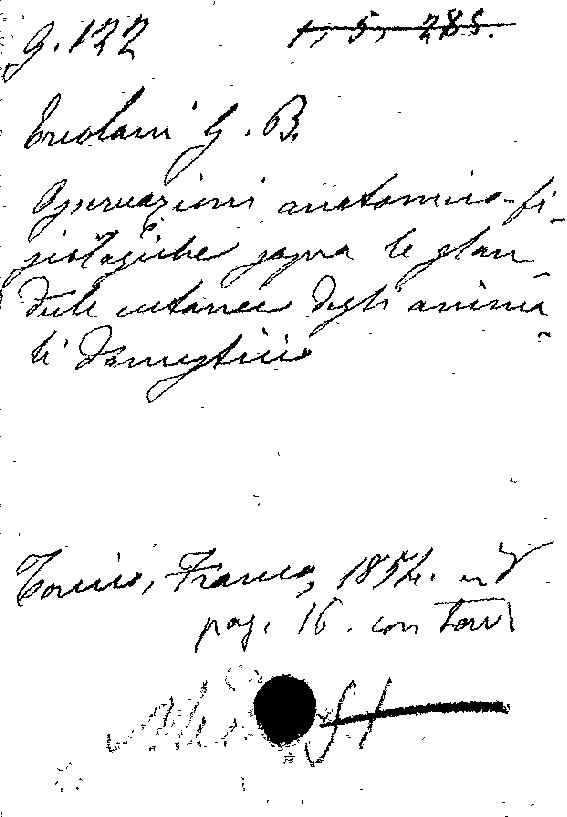 g. 122 1, 5, 285.
Ercolani G. B.
Osservazioni anatomico-fi-
siologiche sopra le glan-
dule cutanee degli anima-
li domestici
Torino, Franco, 1854. in 8
pag. 16. con tav.